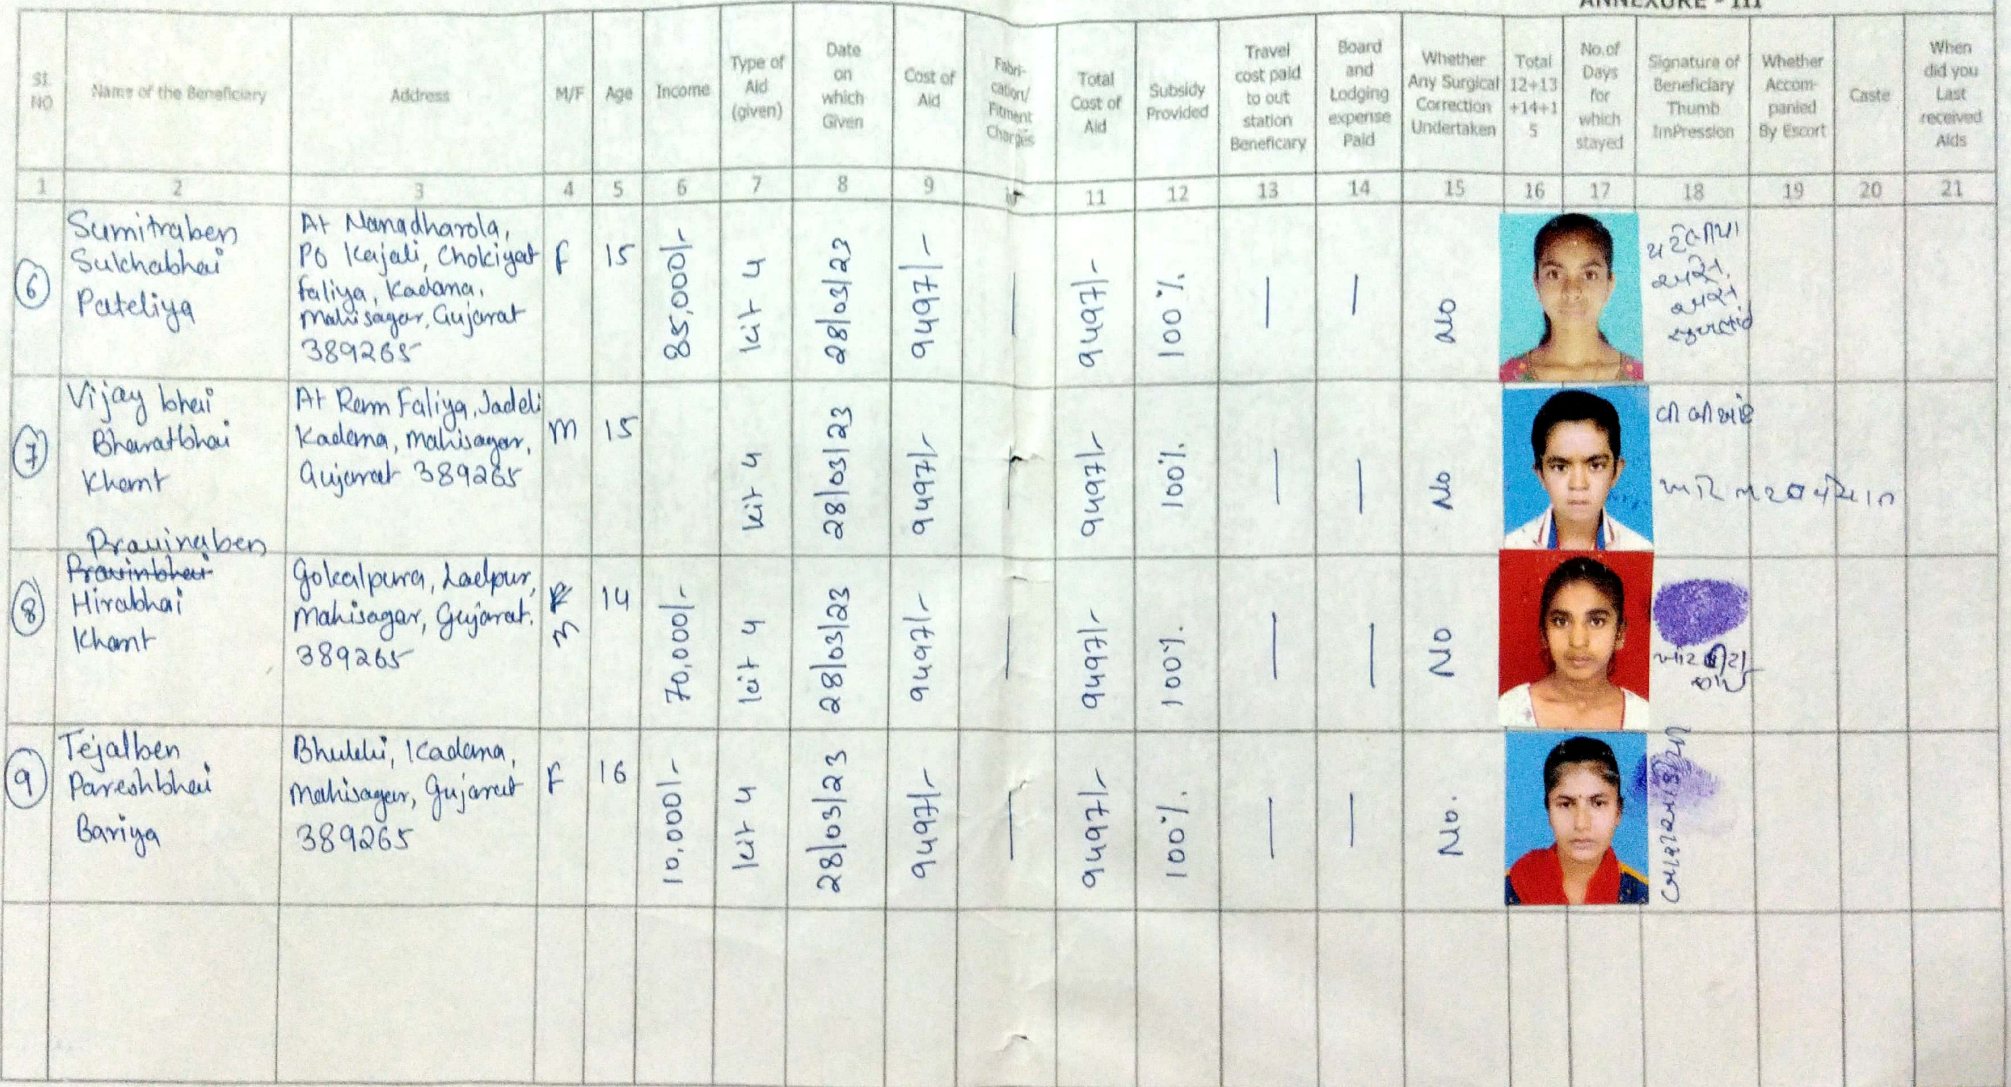 ANNEXURE - III
SI. NO
Name of the Beneficiary
Address
M/F
Age
Income
Type of Aid (given)
Date on which Given
Cost of Aid
Fabri-cation/ Fitment Charges
Total Cost of Aid
Subsidy Provided
Travel cost paid to out station Beneficary
Board and Lodging expense Paid
Whether Any Surgical Correction Undertaken
Total 12+13 +14+1 5
No.of Days for which stayed
Signature of Beneficiary Thumb ImPression
Whether Accom-panied By Escort
Caste
When did you Last received Aids
1 2 3 4 5 6 7 8 9 11 12 13 14 15 16 17 18 19 20 21
6
Sumitraben
Sukhabhai
Pateliya
At Nanadharola,
PO Kajali, Chokiyat
faliya, Kadana,
Mahisagar, Gujarat
389265
F
15
85,000/-
kit 4
28/03/23
9497/-
—
9497/-
100%
—
—
No
7
Vijay bhai
Bharatbhai
Khant
At Ram Faliya, Jadeli
Kadana, Mahisagar,
Gujarat 389265
M
15
kit 4
28/03/23
9497/-
9497/-
100%
—
—
No
8
Pravinaben
Pravinbhai
Hirabhai
Khant
Gokalpura, Ladpur,
Mahisagar, Gujarat.
389265
F
M
14
70,000/-
kit 4
28/03/23
9497/-
—
9497/-
100%
—
—
No
9
Tejalben
Pareshbhai
Bariya
Kadana,
Mahisagar, Gujarat
389265
F
16
10,000/-
kit 4
28/03/23
9497/-
—
9497/-
100%
—
—
No.